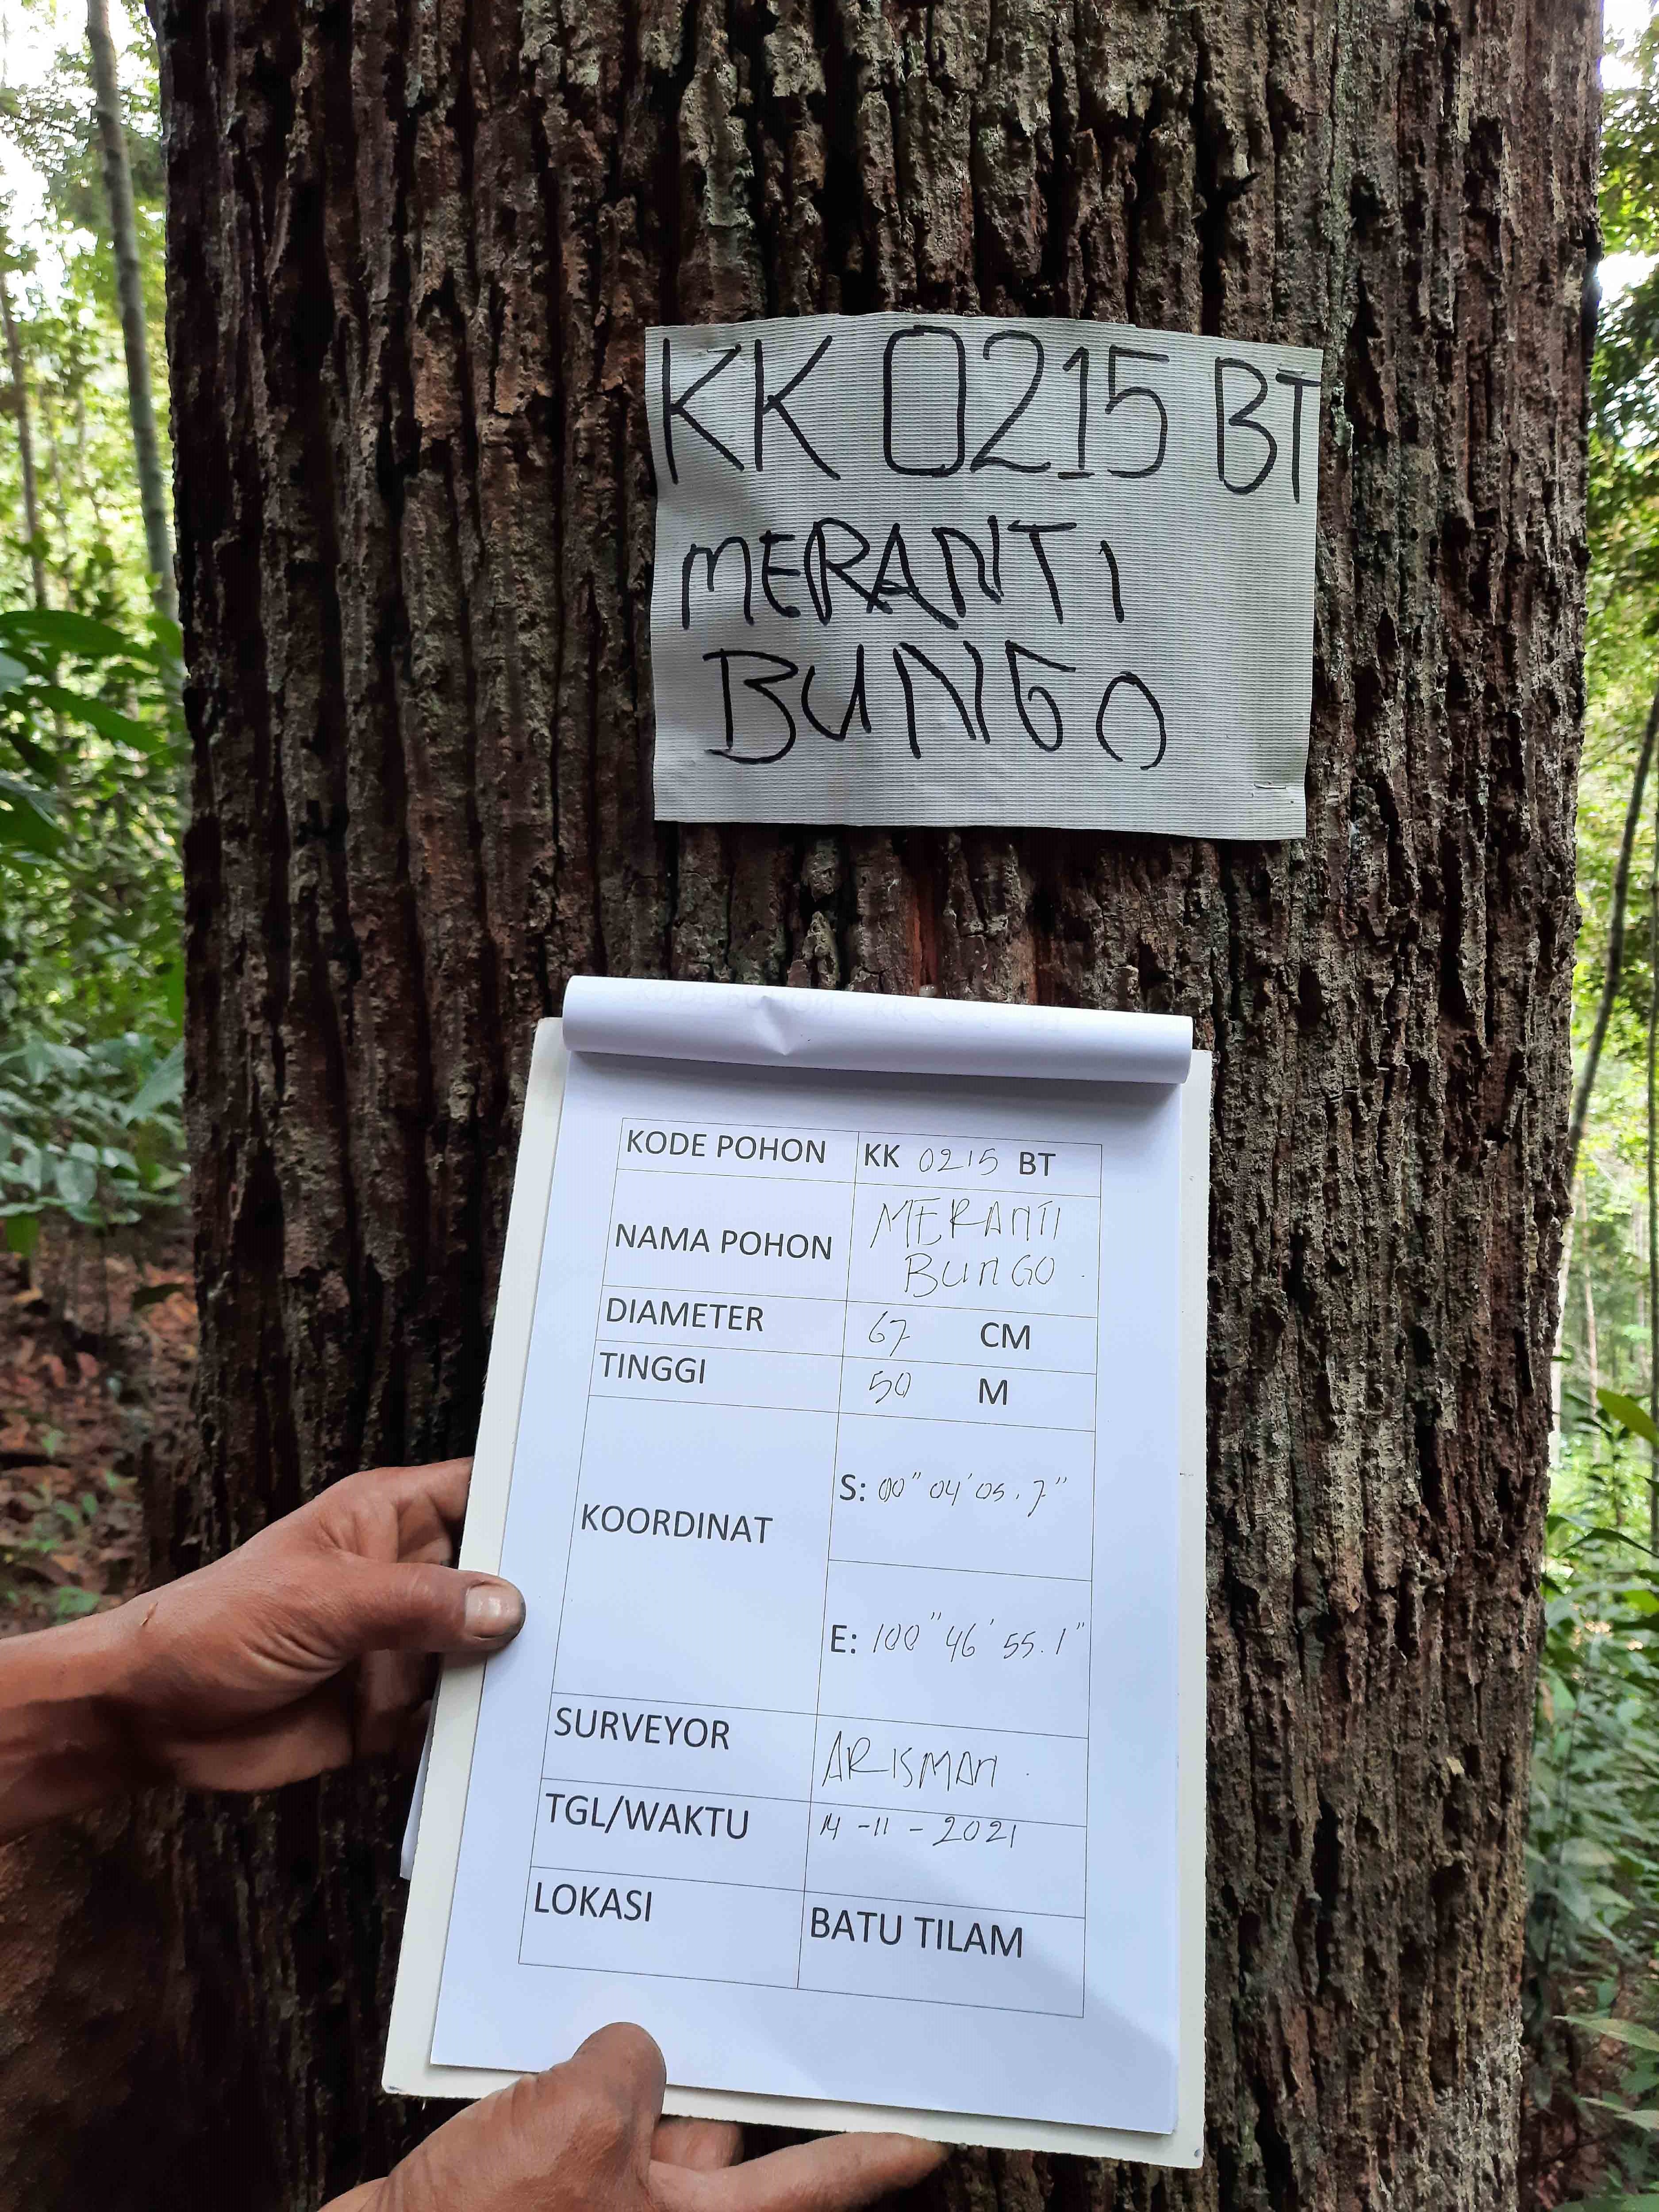 KK 0215 BT
MERANTI
BUNGO
KODE POHON KK 0215 BT
NAMA POHON MERANTI
BUNGO
DIAMETER 67 CM
TINGGI 50 M
KOORDINAT
S: 00" 04' 05.7"
E: 100" 46' 55.1"
SURVEYOR ARISMAN
TGL/WAKTU 14-11-2021
LOKASI BATU TILAM